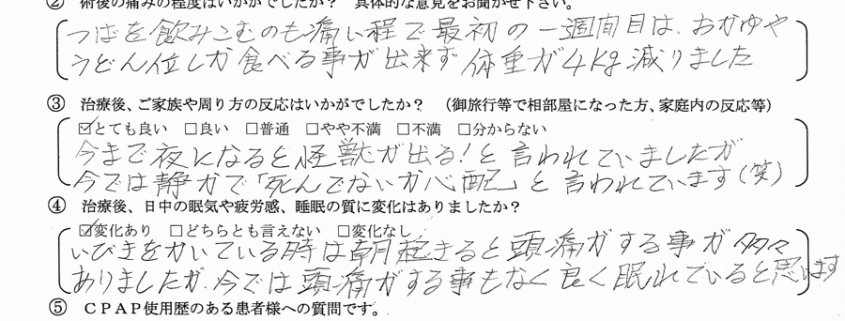 ② 術後の痛みの程度はいかがでしたか? 具体的な意見をお聞かせ下さい。
つばを飲みこむのも痛い程で最初の一週間目は、おかゆや
うどん位しか食べる事が出来ず体重が4kg減りました
③ 治療後、ご家族や周り方の反応はいかがでしたか? (御旅行等で相部屋になった方、家庭内の反応等)
☑とても良い □良い □普通 □やや不満 □不満 □分からない
今まで夜になると怪獣が出る!と言われていましたが
今では静かで「死んでないか心配」と言われています(笑)
④ 治療後、日中の眠気や疲労感、睡眠の質に変化はありましたか?
☑変化あり □どちらとも言えない □変化なし
いびきをかいている時は朝起きると頭痛がする事が多々
ありましたが、今では頭痛がする事もなく良く眠れていると思います
⑤ CPAP使用歴のある患者様への質問です。